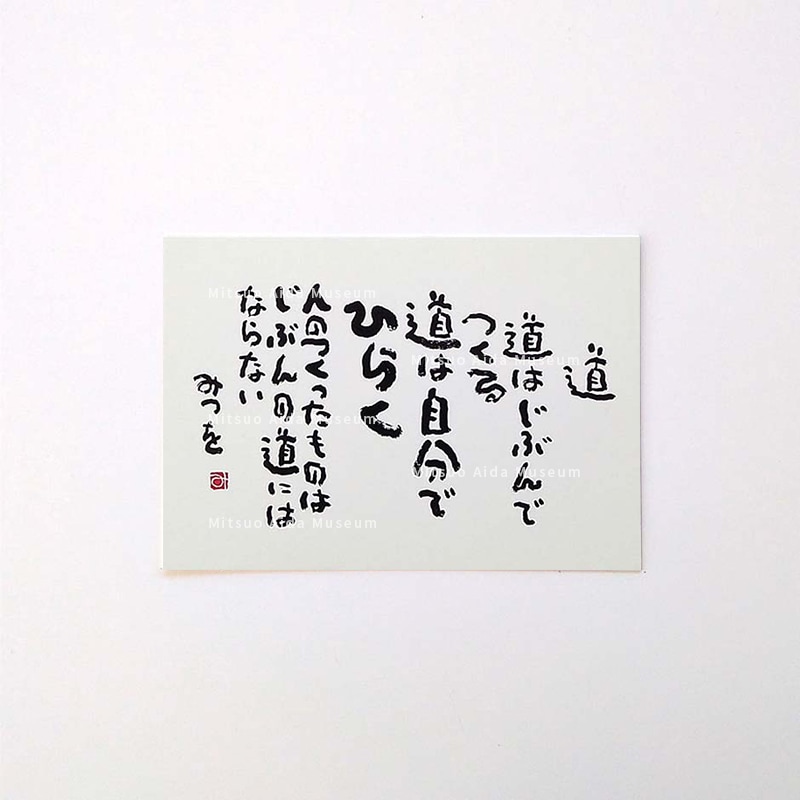 道
道はじぶんで
つくる
道は自分で
ひらく
人のつくったものは
じぶんの道には
ならない
みつを
Mitsuo Aida Museum
Mitsuo Aida Museum
Mitsuo Aida Museum
Mitsuo Aida Museum
Mitsuo Aida Museum